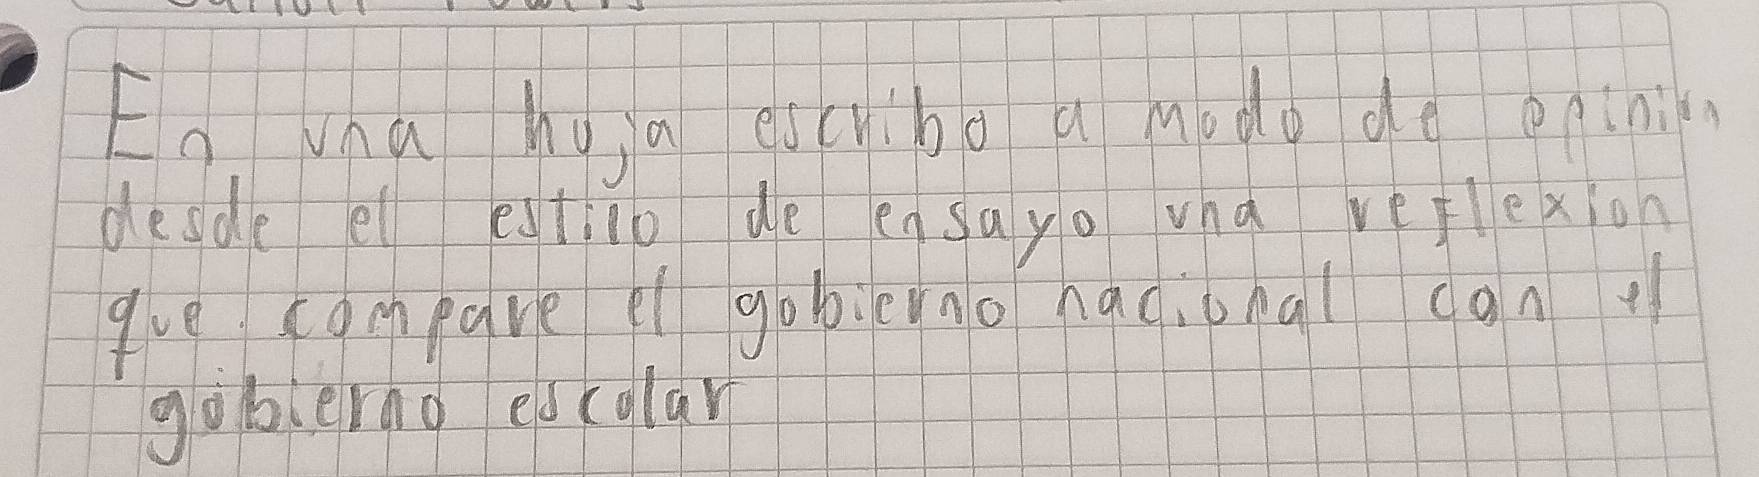 En una hoja escribo a modo de opinion
desde el estilo de ensayo una reflexion
que compare el gobierno nacional con el
gobierno escolar